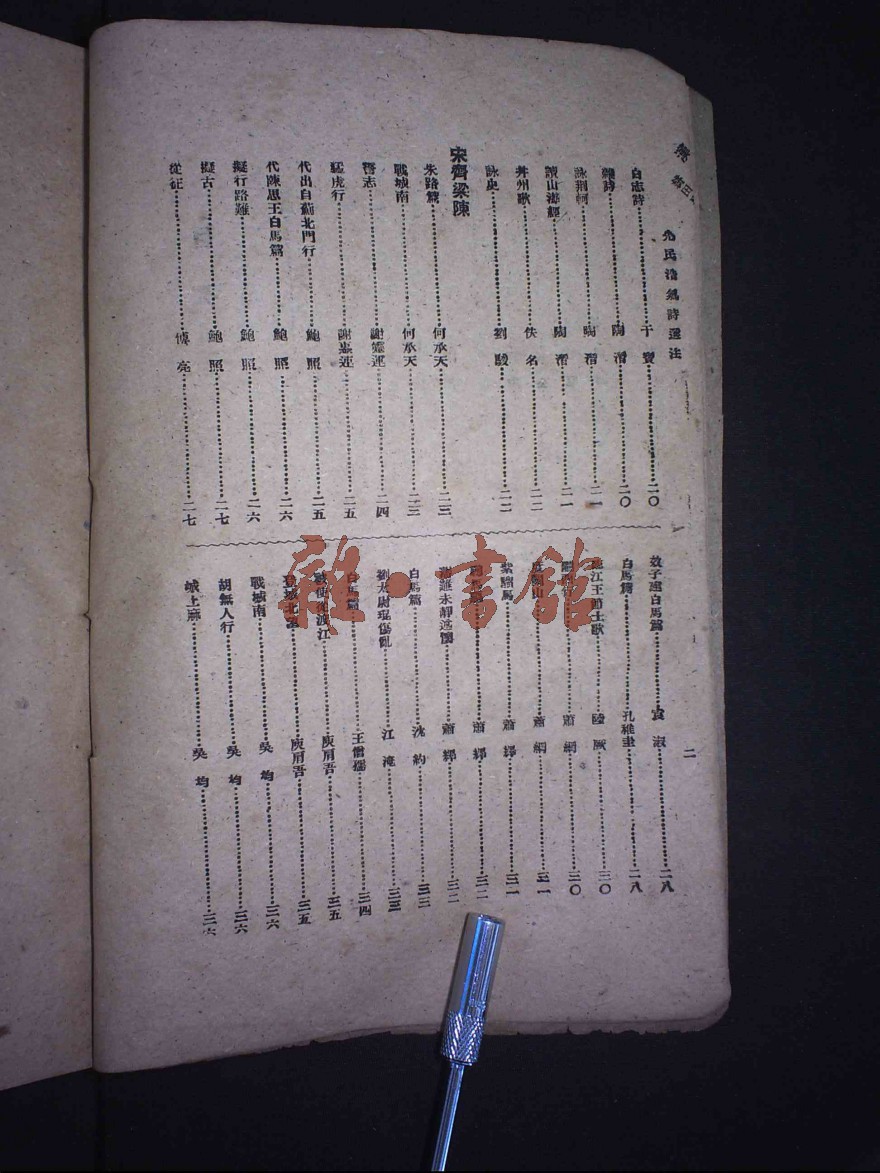 先民浩氣詩選注
二
百志詩 干寶 二〇
雜詩 陶潛 二〇
詠荆軻 陶潛 二一
讀山海經 陶潛 二一
幷州歌 佚名 二二
詠史 劉駿 二二
宋齊梁陳
朱路篇 何承天 二三
戰城南 何承天 二三
謝靈運 二四
猛虎行 謝惠連 二五
代出自薊北門行 鮑照 二五
代陳思王白馬篇 鮑照 二六
擬行路難 鮑照 二六
擬古 鮑照 二七
從征 傅亮 二七
效子建白馬篇 袁淑 二八
白馬篇 孔稚圭 二八
臨江王節士歌 陸厥 三〇
蕭綱 三〇
度關山 蕭綱 三一
紫騮馬 蕭繹 三一
蕭繹 三二
離未靜述懷 蕭繹 三二
白馬篇 沈約 三三
劉太尉琨傷亂 江淹 三三
白馬篇 王僧孺 三四
庾肩吾 三五
登城北望 庾肩吾 三五
戰城南 吳均 三六
胡無人行 吳均 三六
城上麻 吳均 三六
雜·書館